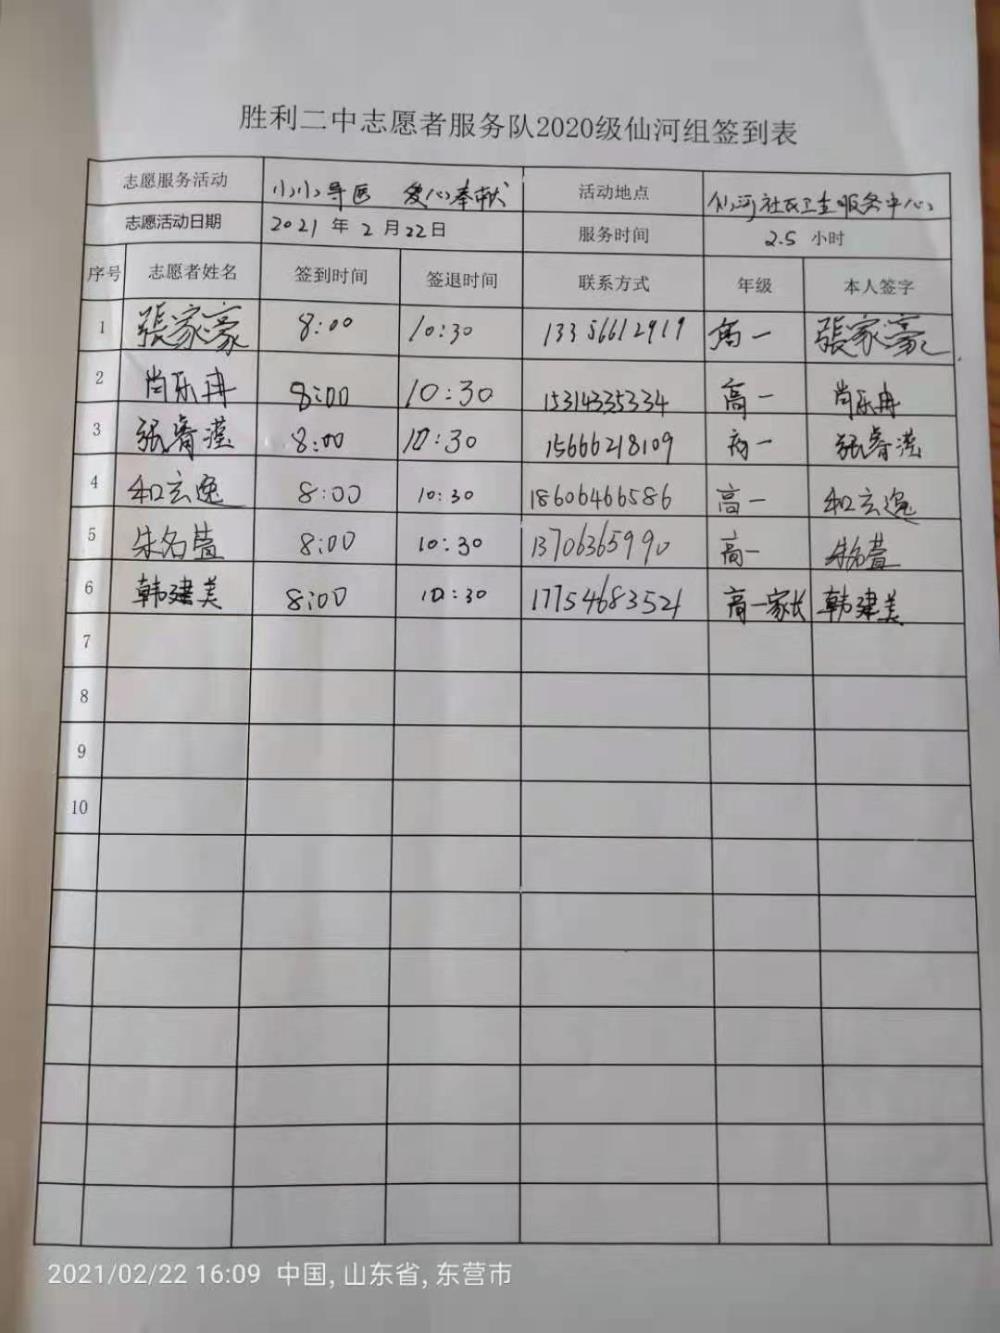 胜利二中志愿者服务队2020级仙河组签到表
志愿服务活动 小小导医 爱心奉献 活动地点 仙河社区卫生服务中心
志愿活动日期 2021年2月22日 服务时间 2.5小时
序号 志愿者姓名 签到时间 签退时间 联系方式 年级 本人签字
1 張家豪 8:00 10:30 13356612919 高一 張家豪
2 尚乐冉 8:00 10:30 15314335334 高一 尚乐冉
3 张睿滢 8:00 10:30 15666218109 高一 张睿滢
4 和云逸 8:00 10:30 18606466586 高一 和云逸
5 朱名萱 8:00 10:30 13706365990 高一 朱名萱
6 韩建美 8:00 10:30 17754683521 高一家长 韩建美
7
8
9
10
2021/02/22 16:09 中国, 山东省, 东营市